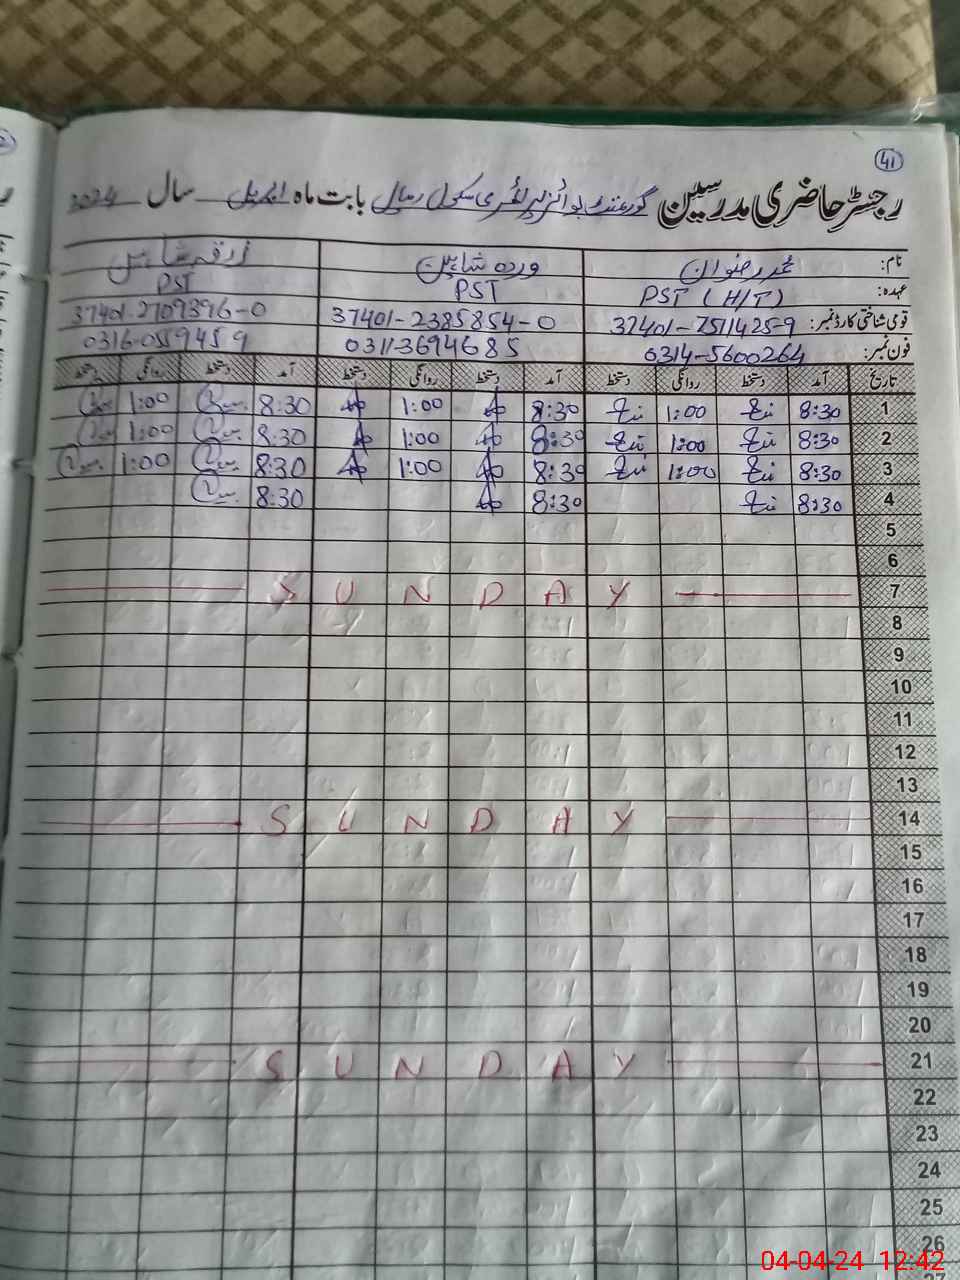 41
رجسٹر حاضری مدرسین گورنمنٹ بوائز پرائمری سکول رسال بابت ماہ اپریل سال 2024
نام: محمد رضوان وردہ شاہین زرقہ شاہین
عہدہ: PST (H/T) PST PST
قومی شناختی کارڈ نمبر: 37401-7511425-9 37401-2385854-0 37401-2709396-0
فون نمبر: 0314-5600264 0311-3694685 0316-0559459
تاریخ آمد دستخط روانگی دستخط آمد دستخط روانگی دستخط آمد دستخط روانگی دستخط
1 8:30 1:00 8:30 1:00 8:30 1:00
2 8:30 1:00 8:30 1:00 8:30 1:00
3 8:30 1:00 8:30 1:00 8:30 1:00
4 8:30 8:30 8:30
5
6
7 SUNDAY
8
9
10
11
12
13
14 SUNDAY
15
16
17
18
19
20
21 SUNDAY
22
23
24
25
26
27
04-04-24 12:42